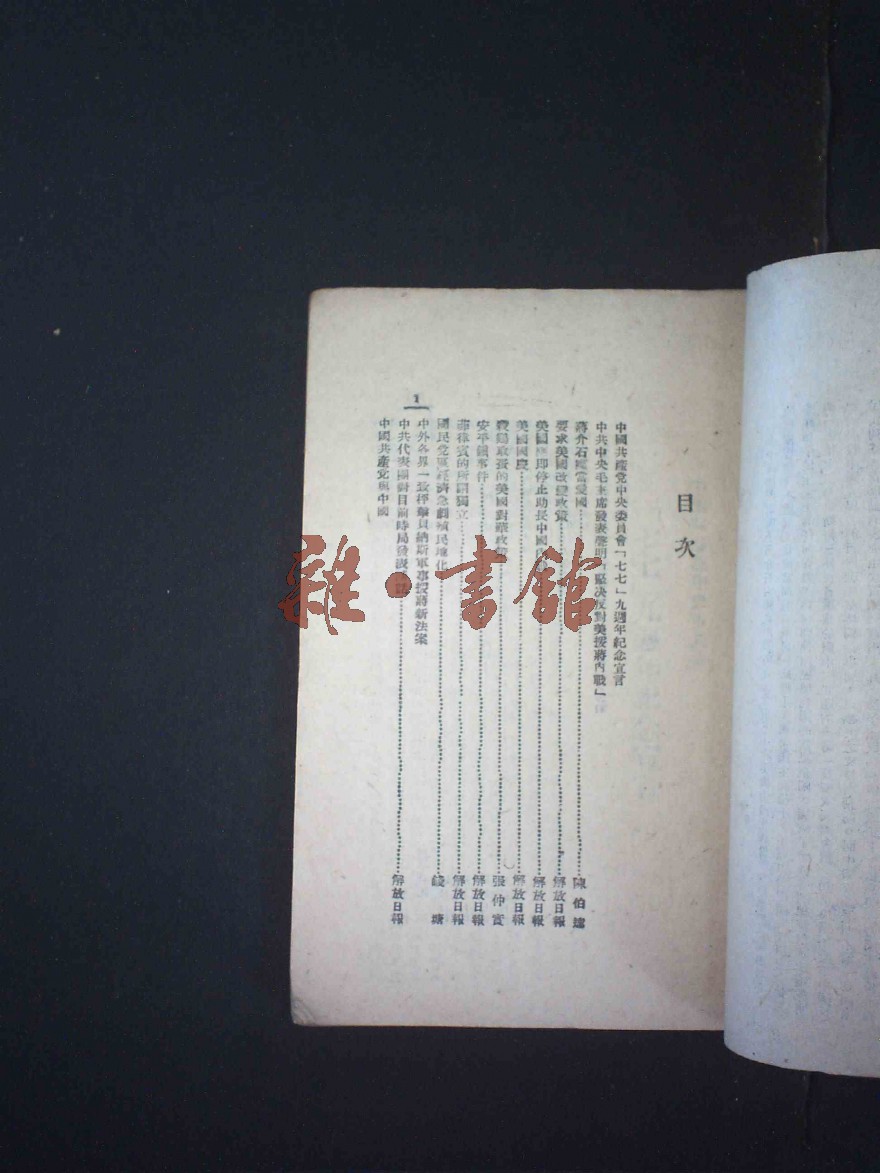 目次
中國共產党中央委員會「七七」九週年紀念宣言
中共中央毛主席發表聲明「堅决反對美援蔣內戰」
蔣介石應當愛國 陳伯達
要求美國改變政策 解放日報
美國應即停止助長中國內 解放日報
美國國慶 解放日報
的美國對華政策 張仲實
安平鎮事件 解放日報
菲律賓的所謂獨立 解放日報
國民党區經濟急劇殖民地化 錢塘
中外各界一致抨擊貝納斯軍事援蔣新法案
中共代表團對目前時局發表 解放日報
中國共產党與中國
1
雜·書館